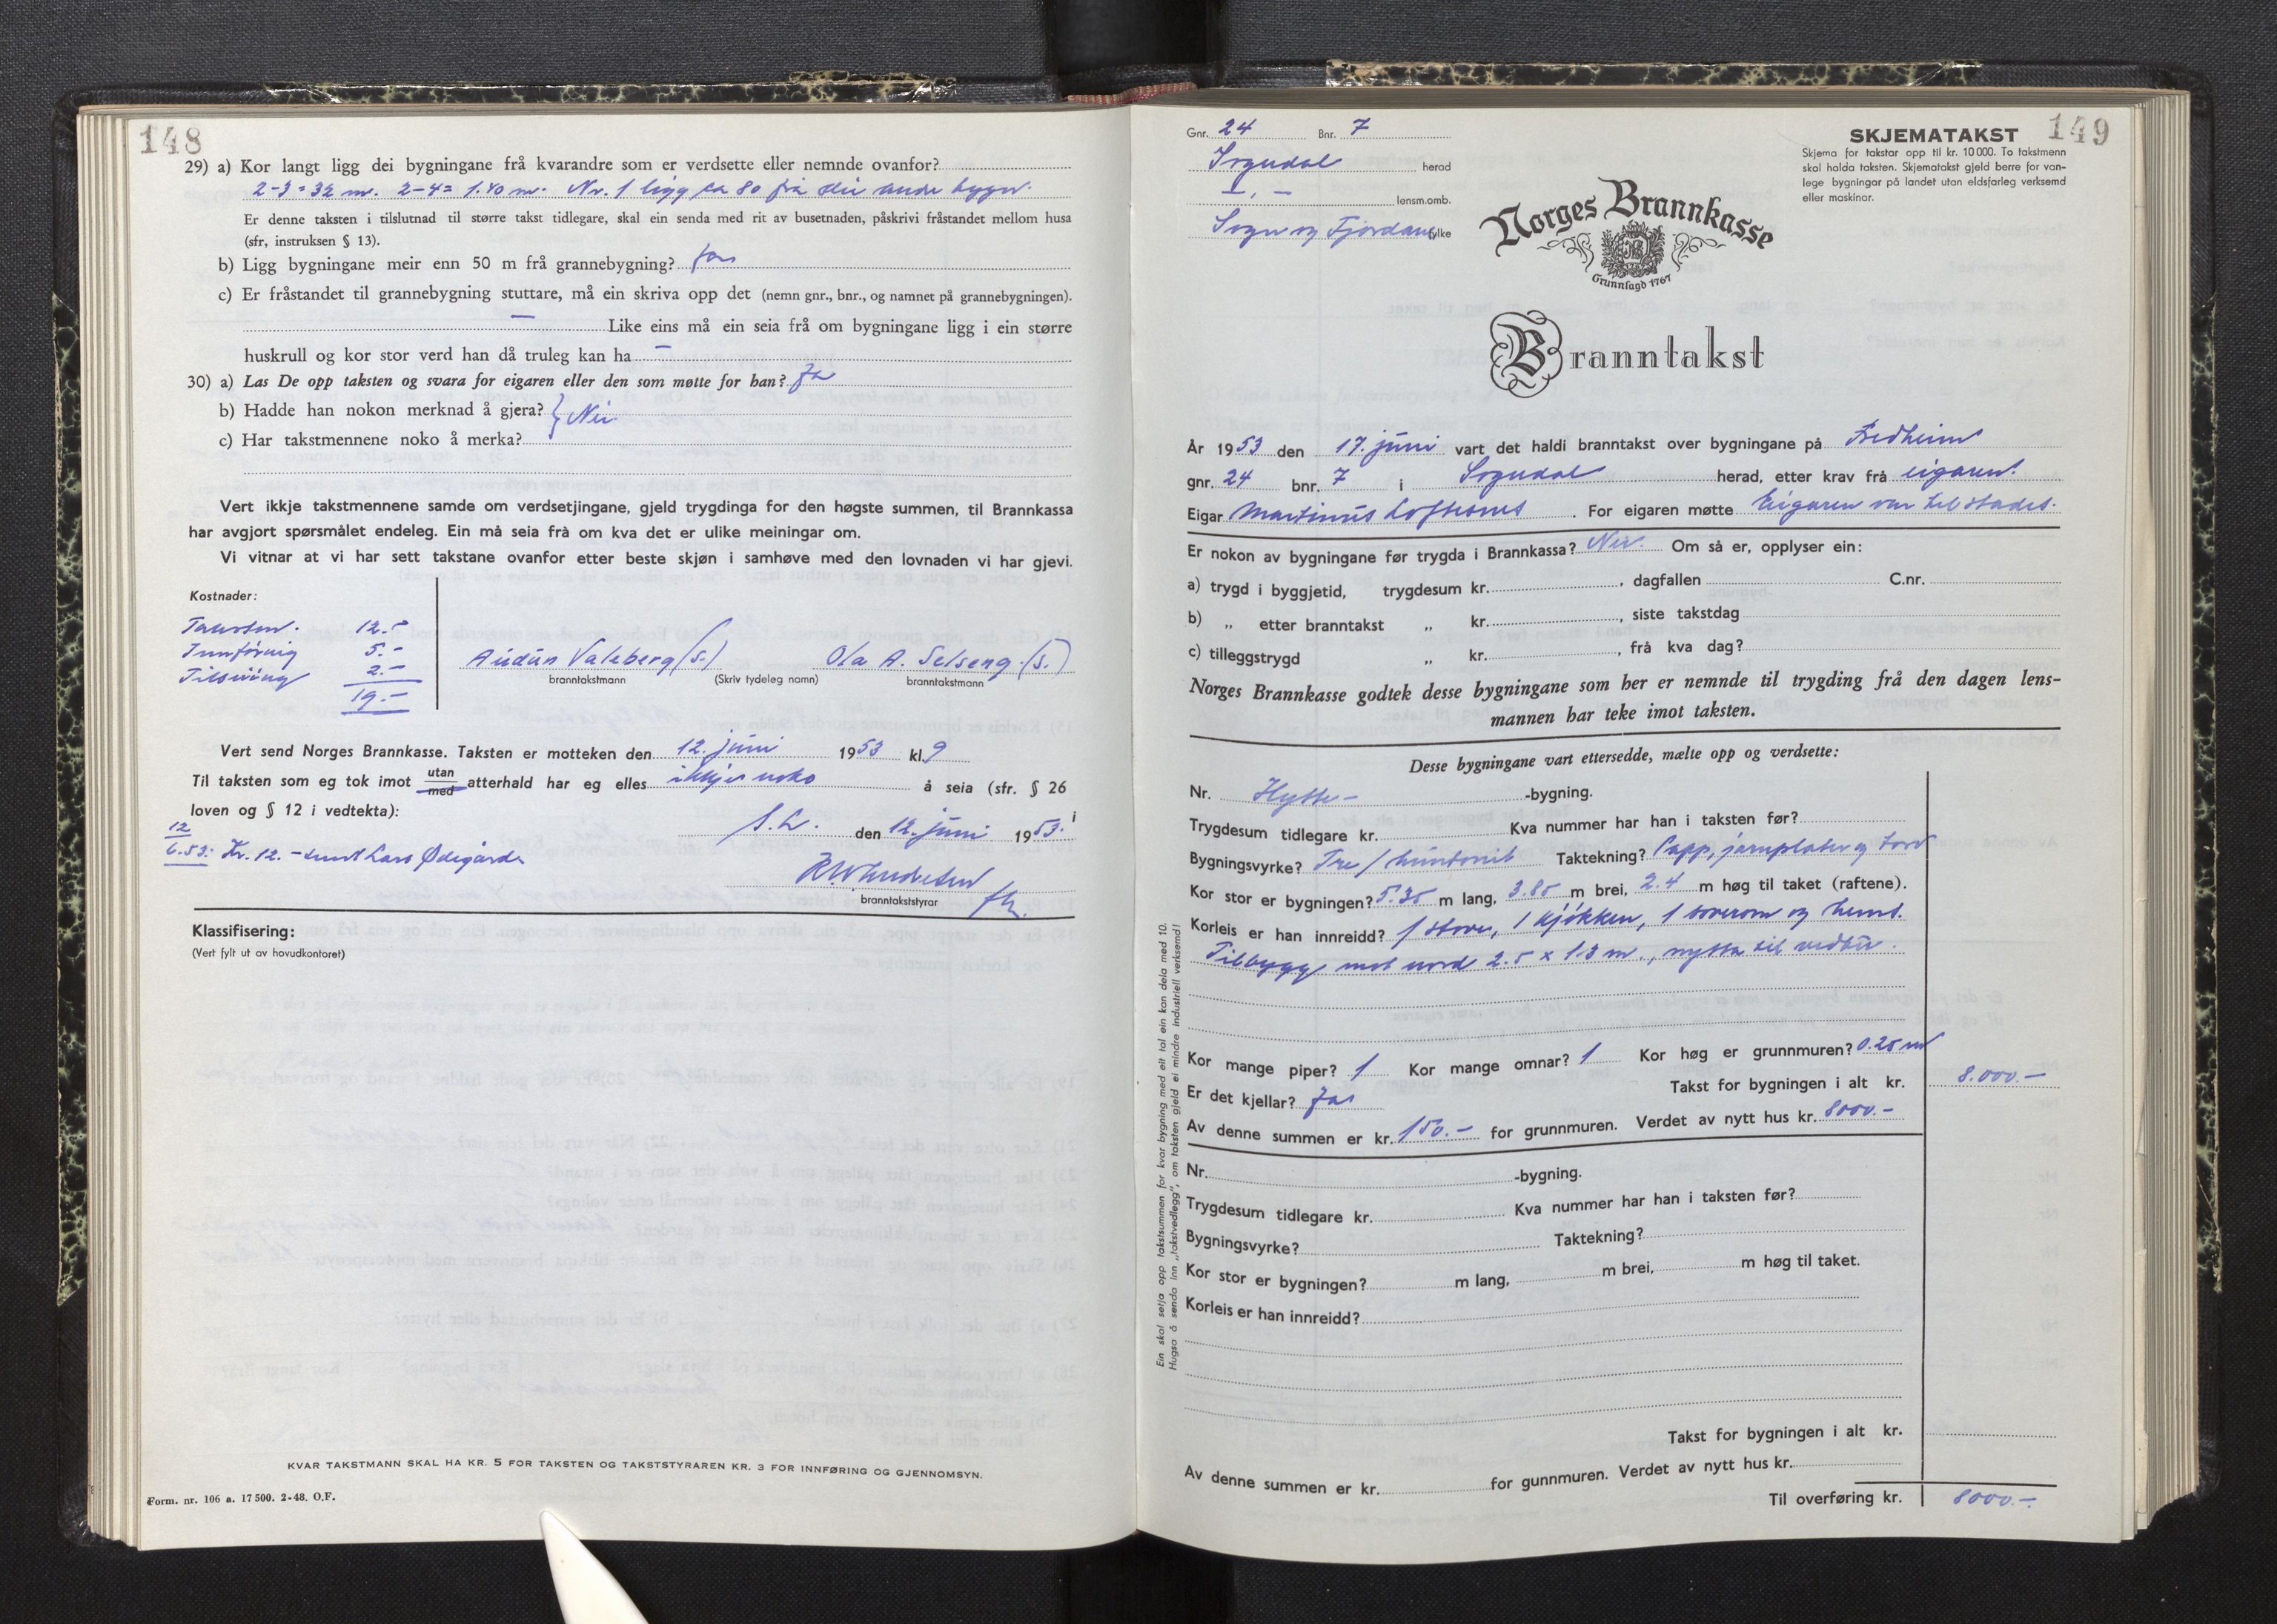 148
29) a) Kor langt ligg dei bygningane frå kvarandre som er verdsette eller nemnde ovanfor?
2-3 = 32 m. 2-4 = 1.80 m. Nr. 1 ligg ca 80 frå dei andre bygn.
Er denne taksten i tilslutnad til større takst tidlegare, skal ein senda med rit av busetnaden, påskrivi fråstandet mellom husa
(sfr, instruksen § 13).
b) Ligg bygningane meir enn 50 m frå grannebygning? Ja
c) Er fråstandet til grannebygning stuttare, må ein skriva opp det (nemn gnr., bnr., og namnet på grannebygningen).
— Like eins må ein seia frå om bygningane ligg i ein større
huskrull og kor stor verd han då truleg kan ha —
30) a) Las De opp taksten og svara for eigaren eller den som møtte for han? Ja
b) Hadde han nokon merknad å gjera? } Nei
c) Har takstmennene noko å merka?
Vert ikkje takstmennene samde om verdsetjingane, gjeld trygdinga for den høgste summen, til Brannkassa
har avgjort spørsmålet endeleg. Ein må seia frå om kva det er ulike meiningar om.
Vi vitnar at vi har sett takstane ovanfor etter beste skjøn i samhøve med den lovnaden vi har gjevi.
Kostnader:
Taksten. 12.-
Innføring 5.-
2.-
19.-
Audun Valeberg (s.) Ola A. Selseng (s.)
branntakstmann (Skriv tydeleg namn) branntakstmann
Vert send Norges Brannkasse. Taksten er motteken den 12. juni 1953 kl. 9
Til taksten som eg tok imot utan/med atterhald har eg elles ikkje noko å seia (sfr. § 26
loven og § 12 i vedtekta):
S.L. den 12. juni 1953.
12/6.53: Kr. 12.- sendt Lars Ødegård
branntakststyrar
Klassifisering:
(Vert fylt ut av hovudkontoret)
KVAR TAKSTMANN SKAL HA KR. 5 FOR TAKSTEN OG TAKSTSTYRAREN KR. 3 FOR INNFØRING OG GJENNOMSYN.
Form. nr. 106 a. 17 500. 2-48. O.F.
149
Gnr. 24 Bnr. 7
Sogndal herad
I, — lensm.omb.
Sogn og Fjordane fylke
SKJEMATAKST
Skjema for takstar opp til kr. 10 000. To takstmenn
skal halda taksten. Skjematakst gjeld berre for van-
lege bygningar på landet utan eldsfarleg verksemd
eller maskinar.
Norges Brannkasse
Grunnlagd 1767
Branntakst
År 1953 den 17. juni vart det haldi branntakst over bygningane på Fredheim
gnr. 24 bnr. 7 i Sogndal herad, etter krav frå eigaren.
Eigar Martinus Loftesnes. For eigaren møtte Eigaren var til stades.
Er nokon av bygningane før trygda i Brannkassa? Nei. Om så er, opplyser ein:
a) trygd i byggjetid, trygdesum kr. , dagfallen C.nr.
b) „ etter branntakst „ kr. , siste takstdag
c) tilleggstrygd „ kr. , frå kva dag?
Norges Brannkasse godtek desse bygningane som her er nemnde til trygding frå den dagen lens-
mannen har teke imot taksten.
Desse bygningane vart ettersedde, mælte opp og verdsette:
Nr. Hytte- -bygning.
Trygdesum tidlegare kr. Kva nummer har han i taksten før?
Bygningsvyrke? Tre / huntonit Taktekning? Papp, jarnplater og torv
Kor stor er bygningen? 5.35 m lang, 3.85 m brei, 2.4 m høg til taket (raftene).
Korleis er han innreidd? 1 stove, 1 kjøkken, 1 soverom og hems.
Tilbygg mot nord 2.5 x 1.3 m., nytta til vedbu.
Kor mange piper? 1 Kor mange omnar? 1 Kor høg er grunnmuren? 0.25 m
Er det kjellar? Ja Takst for bygningen i alt kr. 8.000.-
Av denne summen er kr. 150.- for grunnmuren. Verdet av nytt hus kr. 8000.-
Nr. -bygning.
Trygdesum tidlegare kr. Kva nummer har han i taksten før?
Bygningsvyrke? Taktekning?
Kor stor er bygningen? m lang, m brei, m høg til taket.
Korleis er han innreidd?
Takst for bygningen i alt kr.
Av denne summen er kr. for gunnmuren. Verdet av nytt hus kr.
Til overføring kr. 8000.-
Ein skal setja opp takstsummen for kvar bygning med eit tal ein kan dela med 10.
Hugso å senda inn „takstvedlegg", om taksten gjeld ei mindre industriell verksemd!